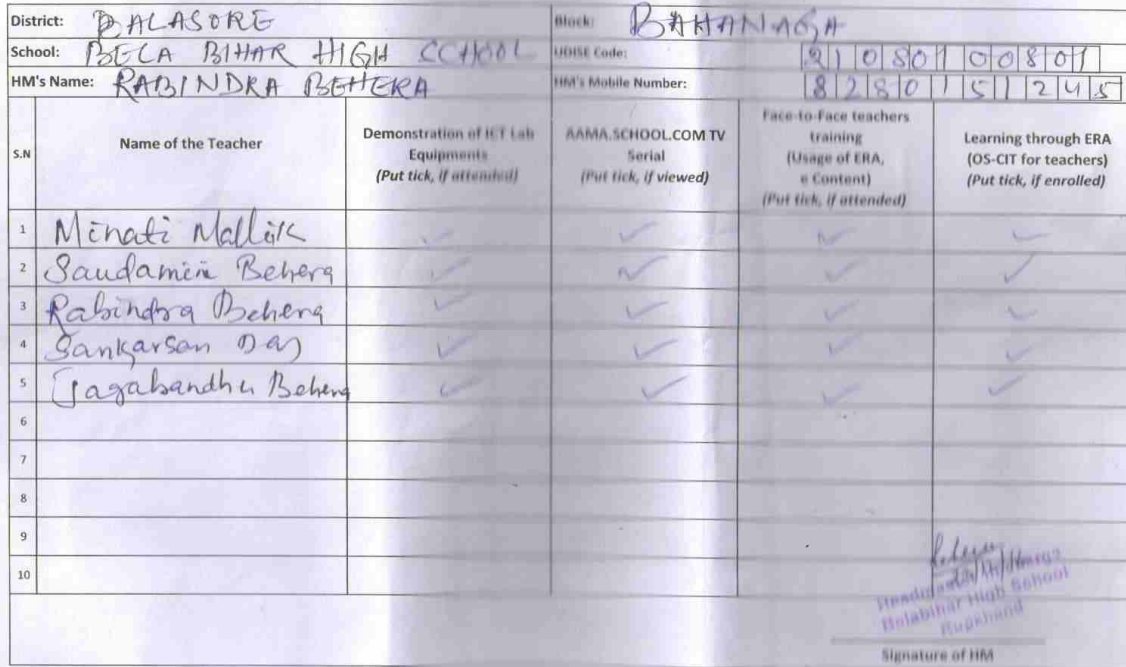 District: BALASORE Block: BAHANAGA
School: BELA BIHAR HIGH CCHOOL UDISE Code: 21080100801
HM's Name: RABINDRA BEHERA HM's Mobile Number: 8280151245
S.N Name of the Teacher Demonstration of ICT Lab Equipments (Put tick, if attended) AAMA.SCHOOL.COM TV Serial (Put tick, if viewed) Face-to-Face teachers training (Usage of ERA, e Content) (Put tick, if attended) Learning through ERA (OS-CIT for teachers) (Put tick, if enrolled)
1 Minati Mallik ✓ ✓ ✓ ✓
2 Saudamini Behera ✓ ✓ ✓ ✓
3 Rabindra Behera ✓ ✓ ✓ ✓
4 Sankarsan Das ✓ ✓ ✓ ✓
5 Jagabandhu Behera ✓ ✓ ✓ ✓
6
7
8
9
10
Belabihar High School
Rupkhand
Signature of HM